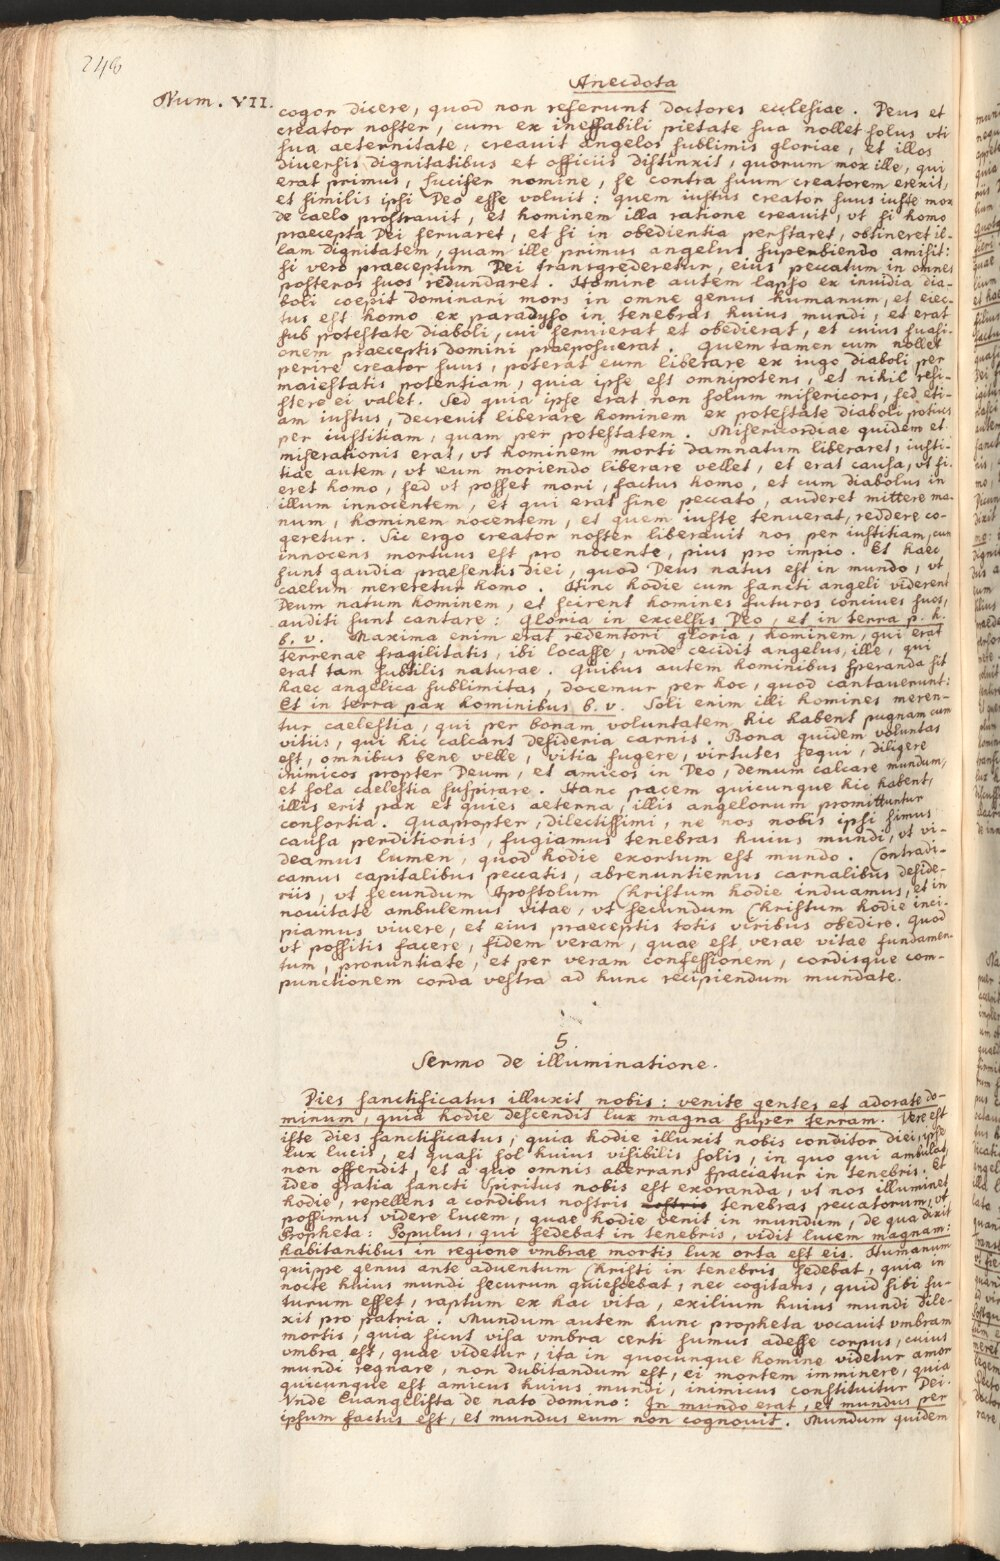 246
Anecdota
Num. VII.
cogor dicere, quod non referunt doctores ecclesiae. Deus et
creator noster, cum ex ineffabili pietate sua nollet solus vti
sua aeternitate, creauit angelos sublimis gloriae, et illos
diuersis dignitatibus et officiis distinxit, quorum mox ille, qui
erat primus, lucifer nomine, se contra suum creatorem erexit,
et similis ipsi Deo esse voluit: quem iustus creator suus iuste mox
de caelo prostrauit, et hominem illa ratione creauit, vt si homo
praecepta Dei seruaret, et si in obedientia perstaret, obtineret il-
lam dignitatem, quam ille primus angelus superbiendo amisit:
si vero praeceptum Dei transgrederetur, eius peccatum in omnes
posteros suos redundaret. Homine autem lapso ex inuidia dia-
boli coepit dominari mors in omne genus humanum, et eiec-
tus est homo ex paradyso in tenebras huius mundi, et erat
sub potestate diaboli, cui seruierat et obedierat, et cuius suasi-
onem praeceptis domini praeposuerat. Quem tamen cum nollet
perire creator suus, poterat eum liberare ex iugo diaboli per
maiestatis potentiam, quia ipse est omnipotens, et nihil resi-
stere ei valet. Sed quia ipse erat non solum misericors, sed eti-
am iustus, decreuit liberare hominem ex potestate diaboli potius
per iustitiam, quam per potestatem. Misericordiae quidem et
miserationis erat, vt hominem morti damnatum liberaret, iusti-
tiae autem, vt eum moriendo liberare vellet, et erat causa, vt fi-
eret homo, sed vt posset mori, factus homo, et cum diabolus in
illum innocentem, et qui erat sine peccato, auderet mittere ma-
num, hominem nocentem, et quem iuste tenuerat, reddere co-
geretur. Sic ergo creator noster liberauit nos per iustitiam, cum
innocens mortuus est pro nocente, pius pro impio. Et haec
sunt gaudia praesentis diei, quod Deus natus est in mundo, vt
caelum mereretur homo. Hinc hodie cum sancti angeli viderent
Deum natum hominem, et scirent homines futuros conciues suos,
auditi sunt cantare: Gloria in excelsis Deo, et in terra p. h.
b. v. Maxima enim erat redemtori gloria, hominem, qui erat
terrenae fragilitatis, ibi locasse, vnde cecidit angelus, ille, qui
erat tam subtilis naturae. Quibus autem hominibus speranda sit
haec angelica sublimitas, docemur per hoc, quod cantauerunt:
Et in terra pax hominibus b. v. Soli enim illi homines meren-
tur caelestia, qui per bonam voluntatem hic habent pugnam cum
vitiis, qui hic calcant desideria carnis. Bona quidem voluntas
est, omnibus bene velle, vitia fugere, virtutes sequi, diligere
inimicos propter Deum, et amicos in Deo, demum calcare mundum,
et sola caelestia suspirare. Hanc pacem quicunque hic habent,
illis erit pax et quies aeterna, illis angelorum promittuntur
consortia. Quapropter, dilectissimi, ne nos nobis ipsi simus
causa perditionis, fugiamus tenebras huius mundi, vt vi-
deamus lumen, quod hodie exortum est mundo. Contradi-
camus capitalibus peccatis, abrenuntiemus carnalibus deside-
riis, vt secundum Apostolum Christum hodie induamus, et in
nouitate ambulemus vitae, vt secundum Christum hodie inci-
piamus viuere, et eius praeceptis totis viribus obedire. Quod
vt possitis facere, fidem veram, quae est verae vitae fundamen-
tum, pronuntiate, et per veram confessionem, cordisque com-
punctionem corda vestra ad hunc recipiendum mundate.
5
Sermo de illuminatione.
Dies sanctificatus illuxit nobis: venite gentes et adorate do-
minum, quia hodie descendit lux magna super terram. Vere est
iste dies sanctificatus, quia hodie illuxit nobis conditor diei, ipse
lux lucis, et quasi sol huius visibilis solis, in quo qui ambulat,
non offendit, et a quo omnis aberrans spaciatur in tenebris. Et
ideo gratia sancti Spiritus nobis est exoranda, vt nos illuminet
hodie, repellens a cordibus nostris nostris tenebras peccatorum, vt
possimus videre lucem, quae hodie venit in mundum, de qua dixit
Propheta: Populus, qui sedebat in tenebris, vidit lucem magnam:
habitantibus in regione vmbrae mortis lux orta est eis. Humanum
quippe genus ante aduentum Christi in tenebris sedebat, quia in
nocte huius mundi securum quiescebat, nec cogitans, quid sibi fu-
turum esset, raptum ex hac vita, exilium huius mundi dile-
xit pro patria. Mundum autem hunc propheta vocauit vmbram
mortis, quia sicut visa vmbra certi sumus adesse corpus, cuius
vmbra est, quae videtur, ita in quocunque homine videtur amor
mundi regnare, non dubitandum est, ei mortem imminere, quia
quicunque est amicus huius mundi, inimicus constituitur Dei.
Vnde Euangelista de nato domino: In mundo erat, et mundus per
ipsum factus est, et mundus eum non cognouit. Mundum quidem